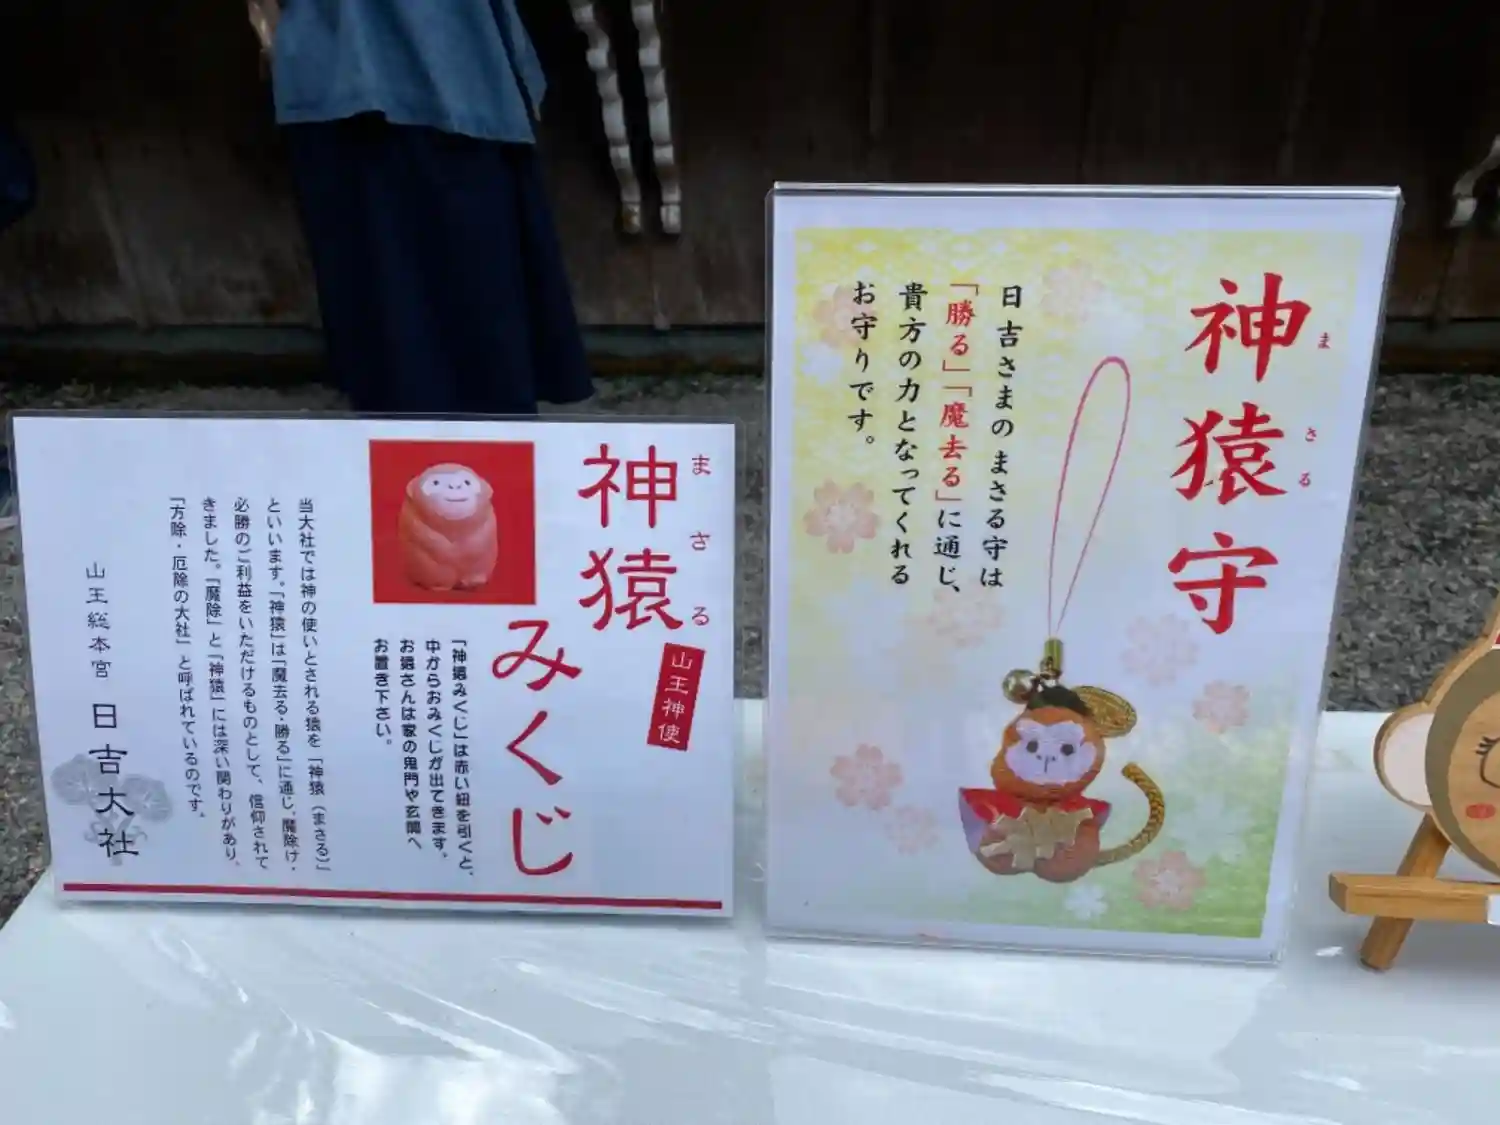 神猿
まさる
みくじ
山王神使
「神猿みくじ」は赤い紐を引くと、
中からおみくじが出てきます。
お猿さんは家の鬼門や玄関へ
お置き下さい。
当大社では神の使いとされる猿を「神猿（まさる）」
といいます。「神猿」は「魔去る・勝る」に通じ、魔除け・
必勝のご利益をいただけるものとして、信仰されて
きました。「魔除」と「神猿」には深い関わりがあり、
「方除・厄除の大社」と呼ばれているのです。
山王総本宮 日吉大社
神猿守
まさる
日吉さまのまさる守は
「勝る」「魔去る」に通じ、
貴方の力となってくれる
お守りです。